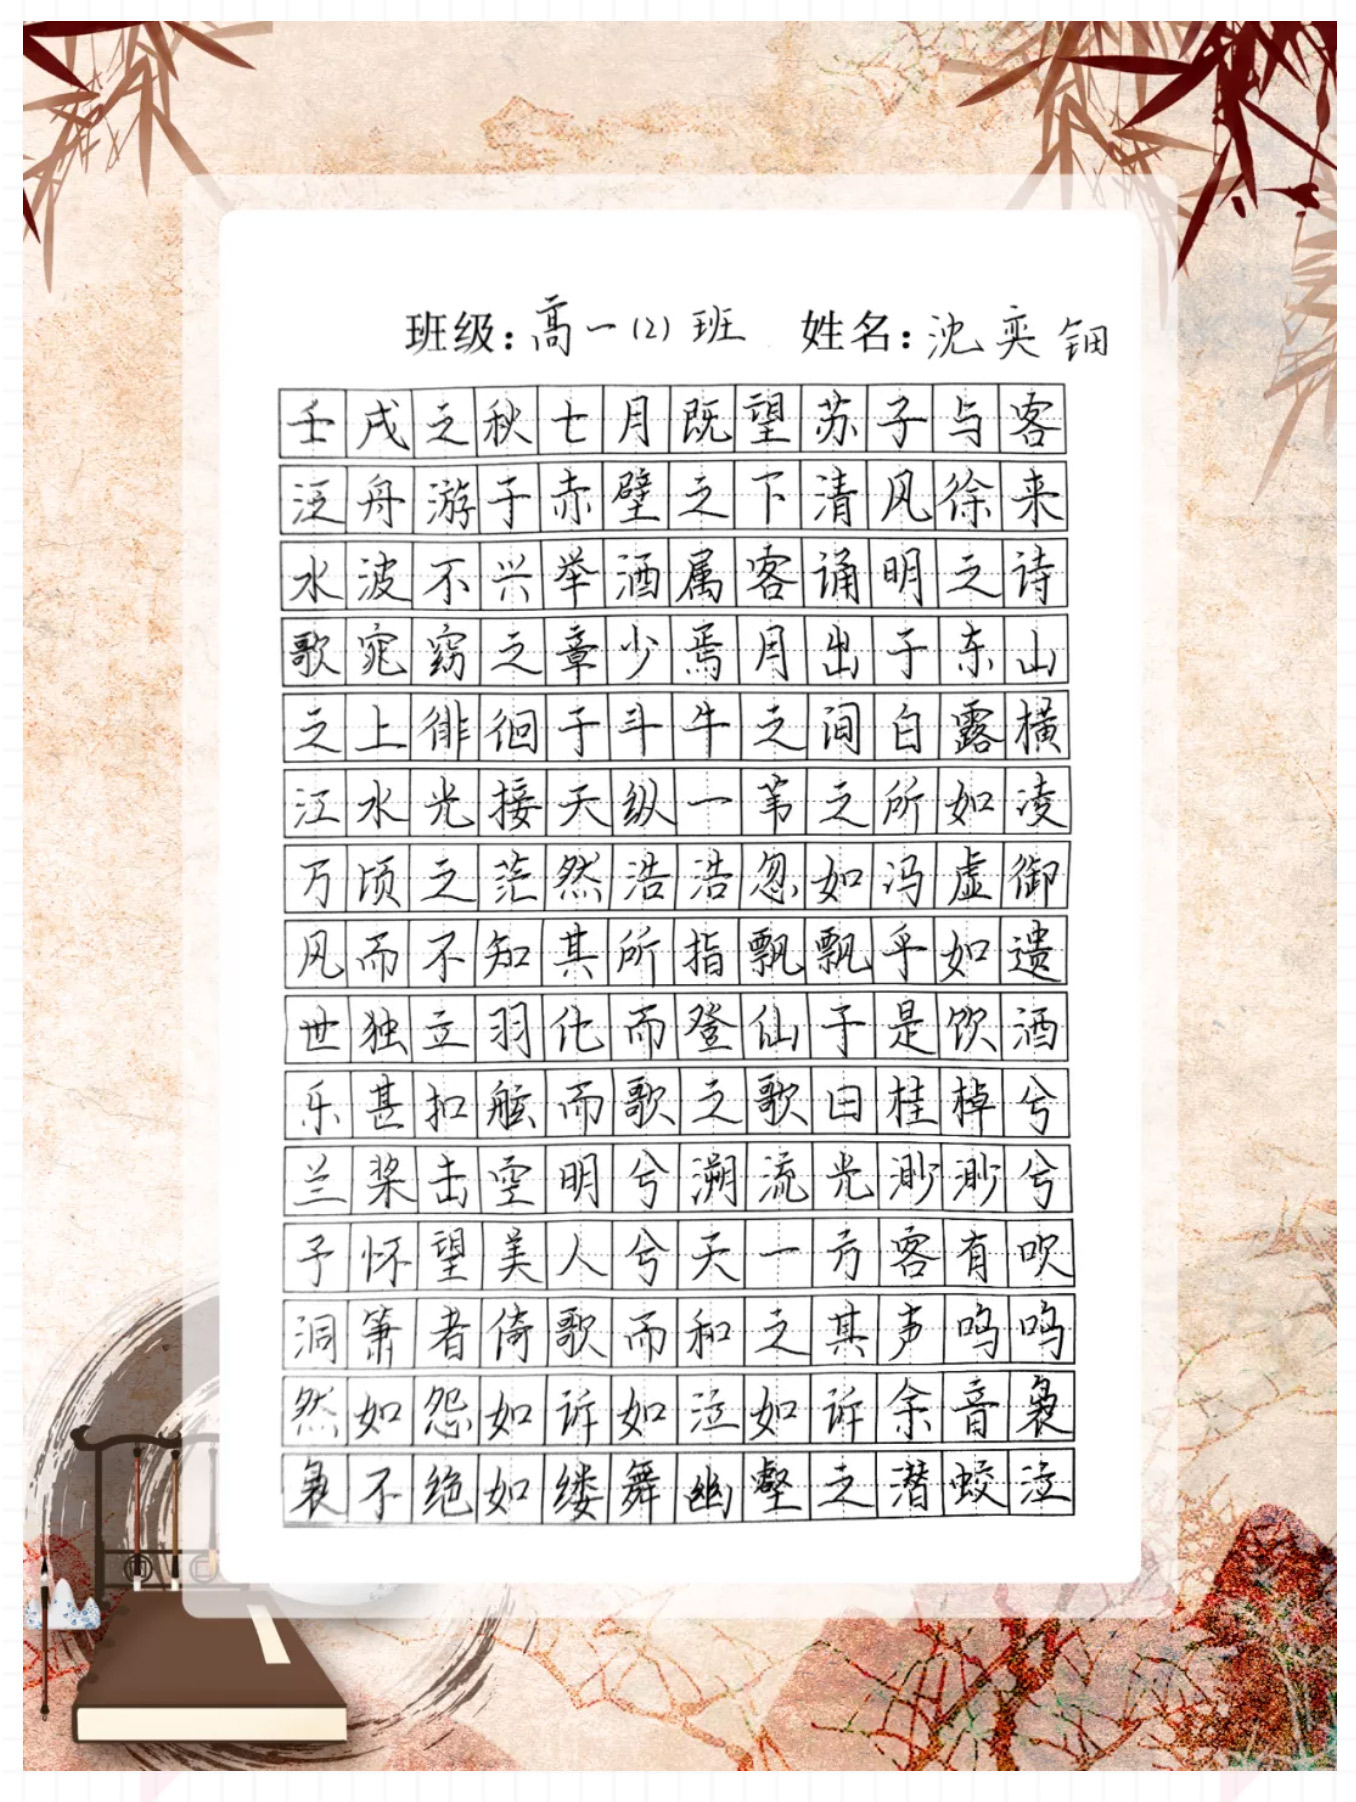 班级：高一(2)班 姓名：沈奕
壬戌之秋七月既望苏子与客
泛舟游于赤壁之下清风徐来
水波不兴举酒属客诵明之诗
歌窕窈之章少焉月出于东山
之上徘徊于斗牛之间白露横
江水光接天纵一苇之所如凌
万顷之茫然浩浩忽如冯虚御
风而不知其所指飘飘乎如遗
世独立羽化而登仙于是饮酒
乐甚扣舷而歌之歌曰桂棹兮
兰桨击空明兮溯流光渺渺兮
予怀望美人兮天一方客有吹
洞箫者倚歌而和之其声呜呜
然如怨如诉如泣如诉余音袅
袅不绝如缕舞幽壑之潜蛟泣